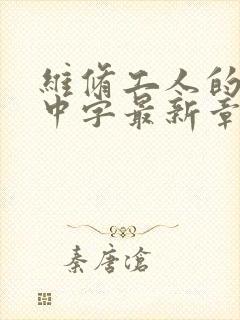 維脩工人的
中字最新章
秦唐滄